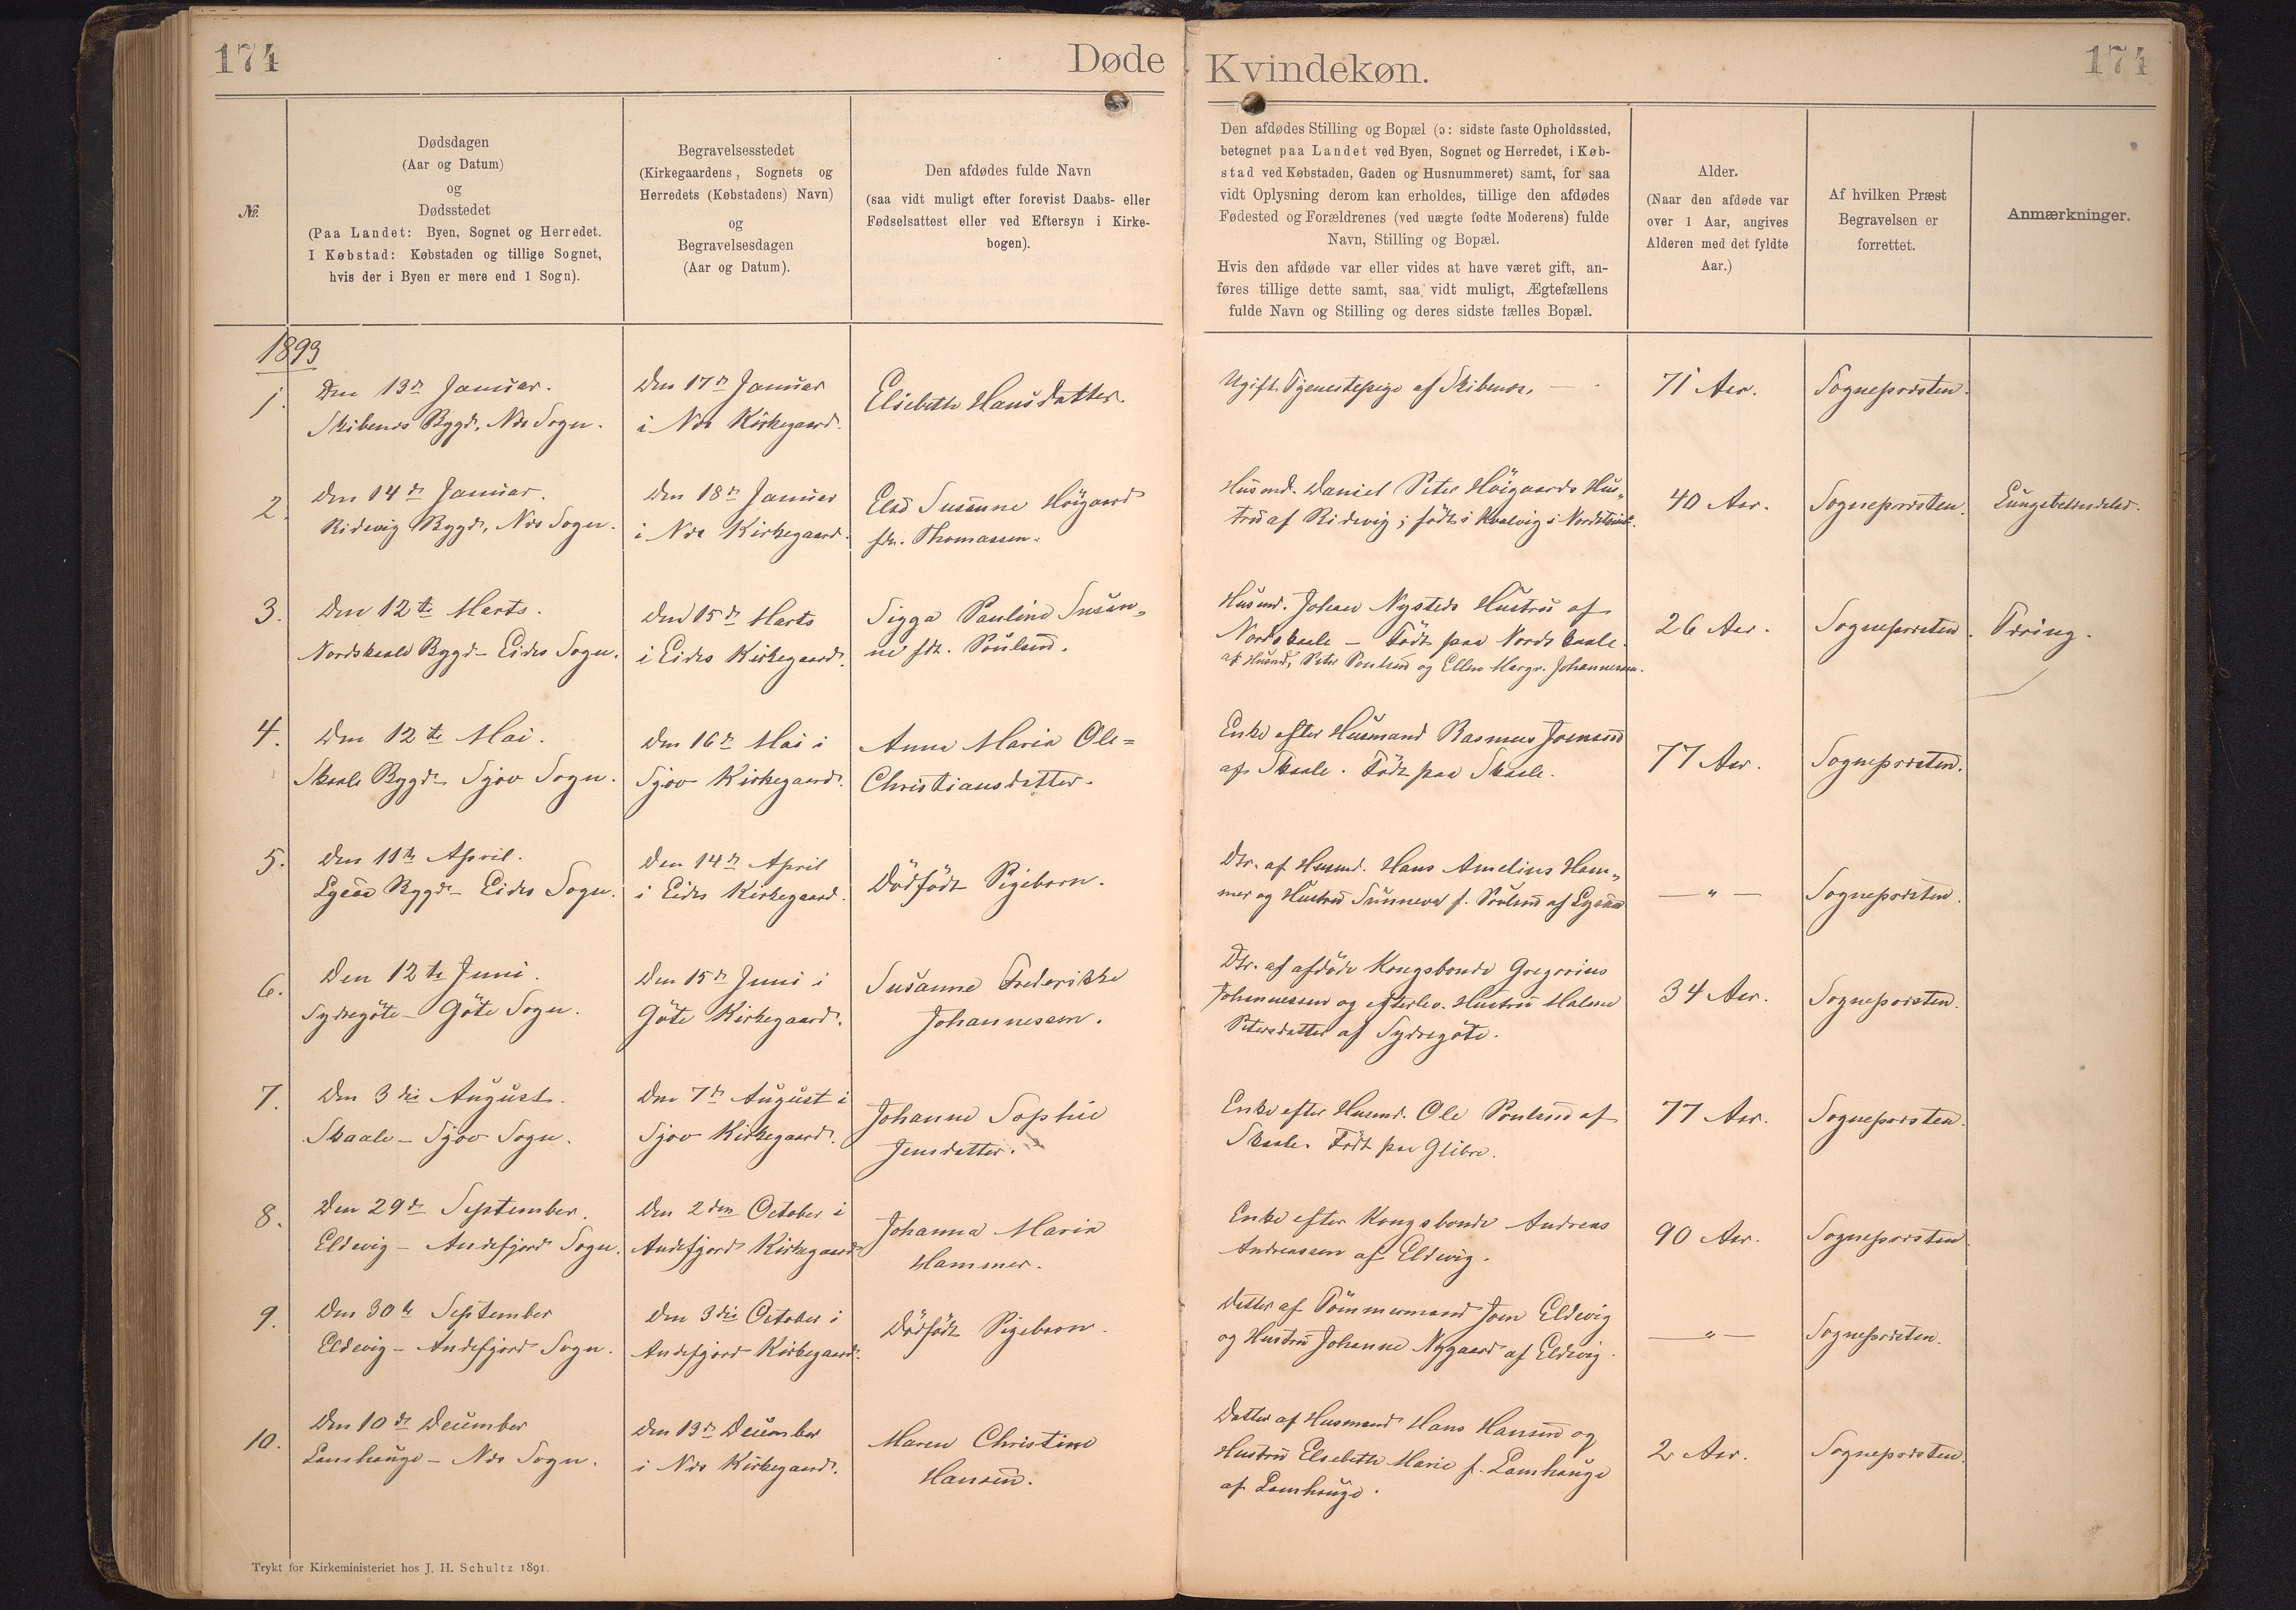 174
Døde
Kvindekøn.
174
№
Dødsdagen
(Aar og Datum)
og
Dødsstedet
(Paa Landet: Byen, Sognet og Herredet.
I Købstad: Købstaden og tillige Sognet,
hvis der i Byen er mere end 1 Sogn).
Begravelsesstedet
(Kirkegaardens, Sognets og
Herredets (Købstadens) Navn)
og
Begravelsesdagen
(Aar og Datum).
Den afdødes fulde Navn
(saa vidt muligt efter forevist Daabs- eller
Fødselsattest eller ved Eftersyn i Kirke-
bogen).
Den afdødes Stilling og Bopæl (ɔ: sidste faste Opholdssted,
betegnet paa Landet ved Byen, Sognet og Herredet, i Køb-
stad ved Købstaden, Gaden og Husnummeret) samt, for saa
vidt Oplysning derom kan erholdes, tillige den afdødes
Fødested og Forældrenes (ved uægte fødte Moderens) fulde
Navn, Stilling og Bopæl.
Hvis den afdøde var eller vides at have været gift, an-
føres tillige dette samt, saa vidt muligt, Ægtefællens
fulde Navn og Stilling og deres sidste fælles Bopæl.
Alder.
(Naar den afdøde var
over 1 Aar, angives
Alderen med det fyldte
Aar.)
Af hvilken Præst
Begravelsen er
forrettet.
Anmærkninger.
1893
1.
Den 13de Januar.
Skibenæs Bygd, Næs Sogn.
Den 17de Januar
i Næs Kirkegaard.
Elsebeth Hansdatter.
Ugift Tjenestepige af Skibenæs.
71 Aar.
Sognepræsten.
2.
Den 14de Januar.
Ridevig Bygd, Næs Sogn.
Den 18de Januar
i Næs Kirkegaard.
Else Susanne Höigaard
fdt. Thomassen.
Husmd. Daniel Peter Höigaards Hus„
tru af Ridevig; født i Kvalvig i Nordströmö.
40 Aar.
Sognepræsten.
Lungebetændelse.
3.
Den 12te Marts.
Nordskaale Bygd – Eides Sogn.
Den 15de Marts
i Eides Kirkegaard.
Sigga Pauline Susan„
ne fdt. Poulsen.
Husmd. Johan Nysteds Hustru af
Nordskaale – Født paa Nordskaale.
af Husmd. Peter Poulsen og Ellen Margr. Johannesen.
26 Aar.
Sognepræsten.
Tæring.
4.
Den 12te Mai.
Skaale Bygd – Sjov Sogn.
Den 16de Mai i
Sjov Kirkegaard.
Anne Maria Ole=
Christiansdatter.
Enke efter Husmand Rasmus Joensen
af Skaale. Født paa Skaale.
77 Aar.
Sognepræsten.
5.
Den 11te April.
Ljaaæ Bygd – Eides Sogn.
Den 14de April
i Eides Kirkegaard.
Dödfödt Pigebarn.
Dtr. af Husmd. Hans Amelius Ham„
mer og Hustru Sunneva f. Poulsen af
— „ —
Sognepræsten.
6.
Den 12te Juni.
Sydregöte – Göte Sogn.
Den 15de Juni i
Göte Kirkegaard.
Susanne Frederikke
Johannesen.
Dtr. af afdöde Kongsbonde Gregorius
Johannessen og efterlev. Hustru Malene
Petersdatter af Sydregöte.
34 Aar.
Sognepræsten.
7.
Den 3die August.
Skaale – Sjov Sogn.
Den 7de August i
Sjov Kirkegaard.
Johanne Sophie
Jensdatter.
Enke efter Husmd. Ole Poulsen af
Skaale. Født paa Glibre.
77 Aar.
Sognepræsten.
8.
Den 29de September.
Eldevig – Andefjord Sogn.
Den 2den October i
Andefjord Kirkegaard
Johanna Maria
Hammer.
Enke efter Kongsbonde Andreas
Andreassen af Eldevig.
90 Aar.
Sognepræsten.
9.
Den 30te September
Eldevig – Andefjord Sogn.
Den 3die October i
Andefjord Kirkegaard.
Dödfödt Pigebarn.
Datter af Tömmermand Joen Eldevig
og Hustru Johanne Nygaard af Eldevig.
— „ —
Sognepræsten.
10.
Den 10de December
Lamhauge – Næs Sogn.
Den 13de December
i Næs Kirkegaard.
Maren Christine
Hansen.
Datter af Husmand Hans Hansen og
Hustru Elsebeth Marie f. Lamhauge
af Lamhauge.
2 Aar.
Sognepræsten.
Trykt for Kirkeministeriet hos J. H. Schultz 1891.